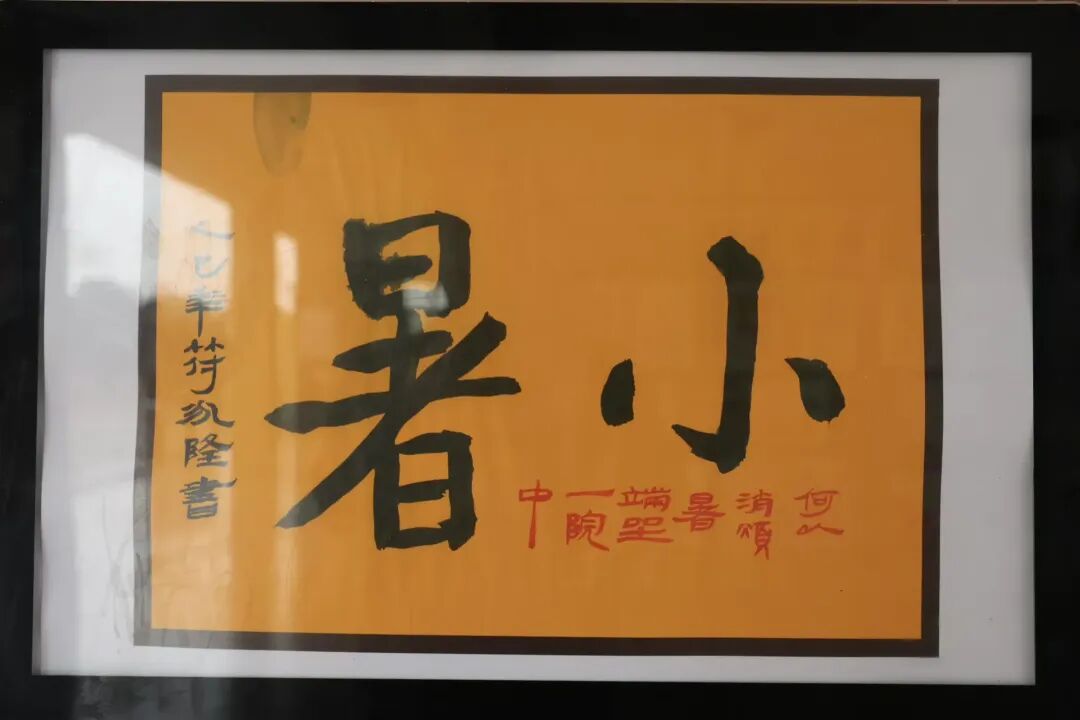 小暑
何以
消煩
暑
端坐
一院
中
乙巳年符隆書